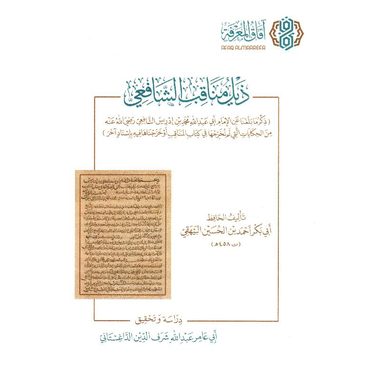 آفاق المعرفة
AFAQ ALMAAREFA
ذيل مناقب الشافعي
(ذكر ما بلغنا عن الإمام أبي عبد الله محمد بن إدريس الشافعي رضي الله عنه
من الحكايات التي لم نخرجها في كتاب المناقب أو خرجناها فيه بإسناد آخر)
تأليف الحافظ
أبي بكر أحمد بن الحسين البيهقي
(ت ٤٥٨هـ)
دراسة وتحقيق
أبي عامر عبد الله شرف الدين الداغستاني